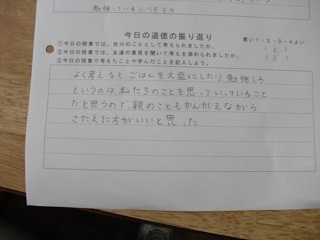 勉強しているふりをする
今日の道徳の振り返り
悪い1－2－3－4よい
①今日の授業では、自分のこととして考えられましたか。
②今日の授業では、友達の意見を聞いて考えを深められましたか。
③今日の授業で考えたことや学んだことを記入しよう。
よく考えると ごはんを大盛にしたり 勉強しろ
というのは、私たちのことを思って いっていること
だと思うので、親のこともかんがえながら
こたえた方がいいと思った